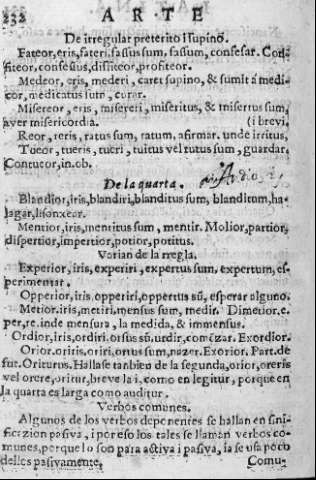 232 ARTE
De irregular preterito i supino.
Fateor, eris, fateri, fassus sum, fassum, confesar. Con-
fiteor, confessus, disfiteor, profiteor.
Medeor, eris, mederi, caret supino, & sumit à medi-
cor, medicatus sum, curar.
Misereor, eris, misereri, miseritus, & misertus sum,
aver misericordia. (i brevi,
Reor, reris, ratus sum, ratum, afirmar. unde irritus,
Tueor, tueris, tueri, tuitus vel tutus sum, guardar.
Contueor, in. ob.
De la quarta.
Blandior, iris, blandiri, blanditus sum, blanditum, ha-
lagar, lisonxear.
Mentior, iris, mentitus sum, mentir. Molior, partior,
dispertior, impertior, potior, potitus.
Varian de la rregla.
Experior, iris, experiri, expertus sum, expertum, es-
perimentar.
Opperior, iris, opperiri, oppertus sũ, esperar alguno.
Metior, iris, metiri, mensus sum, medir. Dimetior. e.
per, re. inde mensura, la medida, & immensus.
Ordior, iris, ordiri. orsus sũ. urdir, comẽzar. Exordior.
Orior. oriris, oriri, ortus sum, nazer. Exorior. Part. de
fut. Oriturus. Hállase tanbien de la segunda, orior, oreris
vel orere, oritur, breve la i. como en legitur, porque en
la quarta es larga como auditur.
Verbos comunes.
Algunos de los verbos deponentes se hallan en sini-
ficazion pasiva, i por eso los tales se llaman verbos co-
munes, porque lo son para activa i pasiva, ia se usa poco
delles pasivamente, Comu-